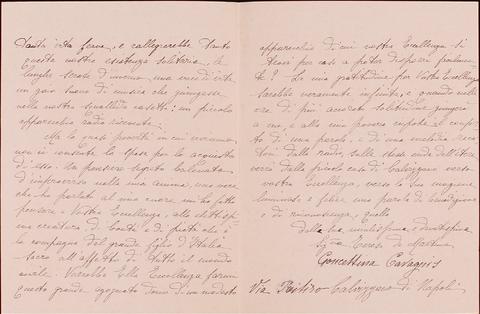 tanta ista ferve, e rallegrerebbe tanto
questa nostra esistenza solitaria, le
lunghe serate d'inverno, una eredi di vita
un gaio suono di musica che giungesse
nella nostra squallida casetti: un piccolo
apparecchio radio ricevente.
Ma la quasi povertà in cui viviamo
non ci consente la spesa per lo acquisto
di esso. Un pensiero segreto balenato
d'improvviso nella mia anima, una voce
che ha parlato al mio cuore mi ha fatto
pensare a Vostra Eccellenza, alla eletta
creatura di bontà e di pietà che è
la compagna del grande figlio d'Italia
sacro all'affetto di tutto il mondo
civile. Vorrebbe Ella Eccellenza farmi
questo grande agognato dono di un modesto
apparecchio di cui Vostra Eccellenza si
trovi per caso a poter disporre
te? La mia gratitudine per Vostra Eccellenza
sarebbe veramente infinita, e quando nelle
ore di più accorata solitudine giungerà
a me, e alla mia povera nipote il confor
to di una parola, e di una melodia
dalla radio, sulle stesse onde dell'etere
verrà dalla piccola casa di Calvizzano verso
Vostra Eccellenza, verso la Sua magione
luminosa e felice una parola di benedizione
e di riconoscenza, quella
della sua umilissima e devotissima
Teresa De Martino
Concettina Cavagnis
Via Calvizzano di Napoli